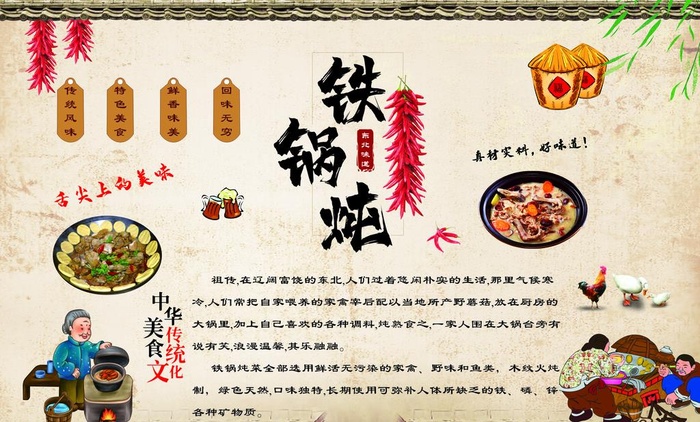 传统风味
特色美食
鲜香味美
回味无穷
铁锅炖
东北味道
真材实料，好味道！
舌尖上的美味
中华传统
美食文化
祖传,在辽阔富饶的东北,人们过着悠闲朴实的生活,那里气侯寒
冷,人们常把自家喂养的家禽宰后配以当地所产野蘑菇,放在厨房的
大锅里,加上自己喜欢的各种调料,炖熟食之,一家人围在大锅台旁有
说有笑,浪漫温馨,其乐融融。
铁锅炖菜全部选用鲜活无污染的家禽、野味和鱼类，木纹火炖
制，绿色天然,口味独特,长期使用可弥补人体所缺乏的铁、磷、锌
各种矿物质。